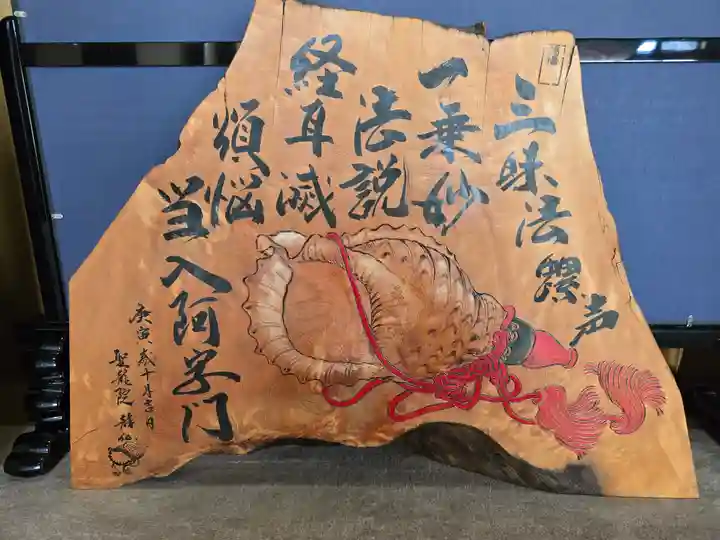 三昧法螺声
一乗妙
法説
経耳滅
煩悩
当入阿字門
庚寅歳十月吉日
聖龍院